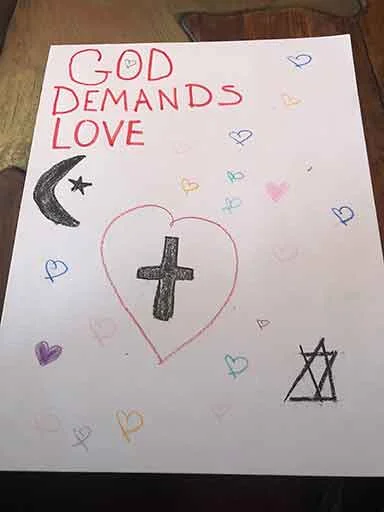 GOD
DEMANDS
LOVE